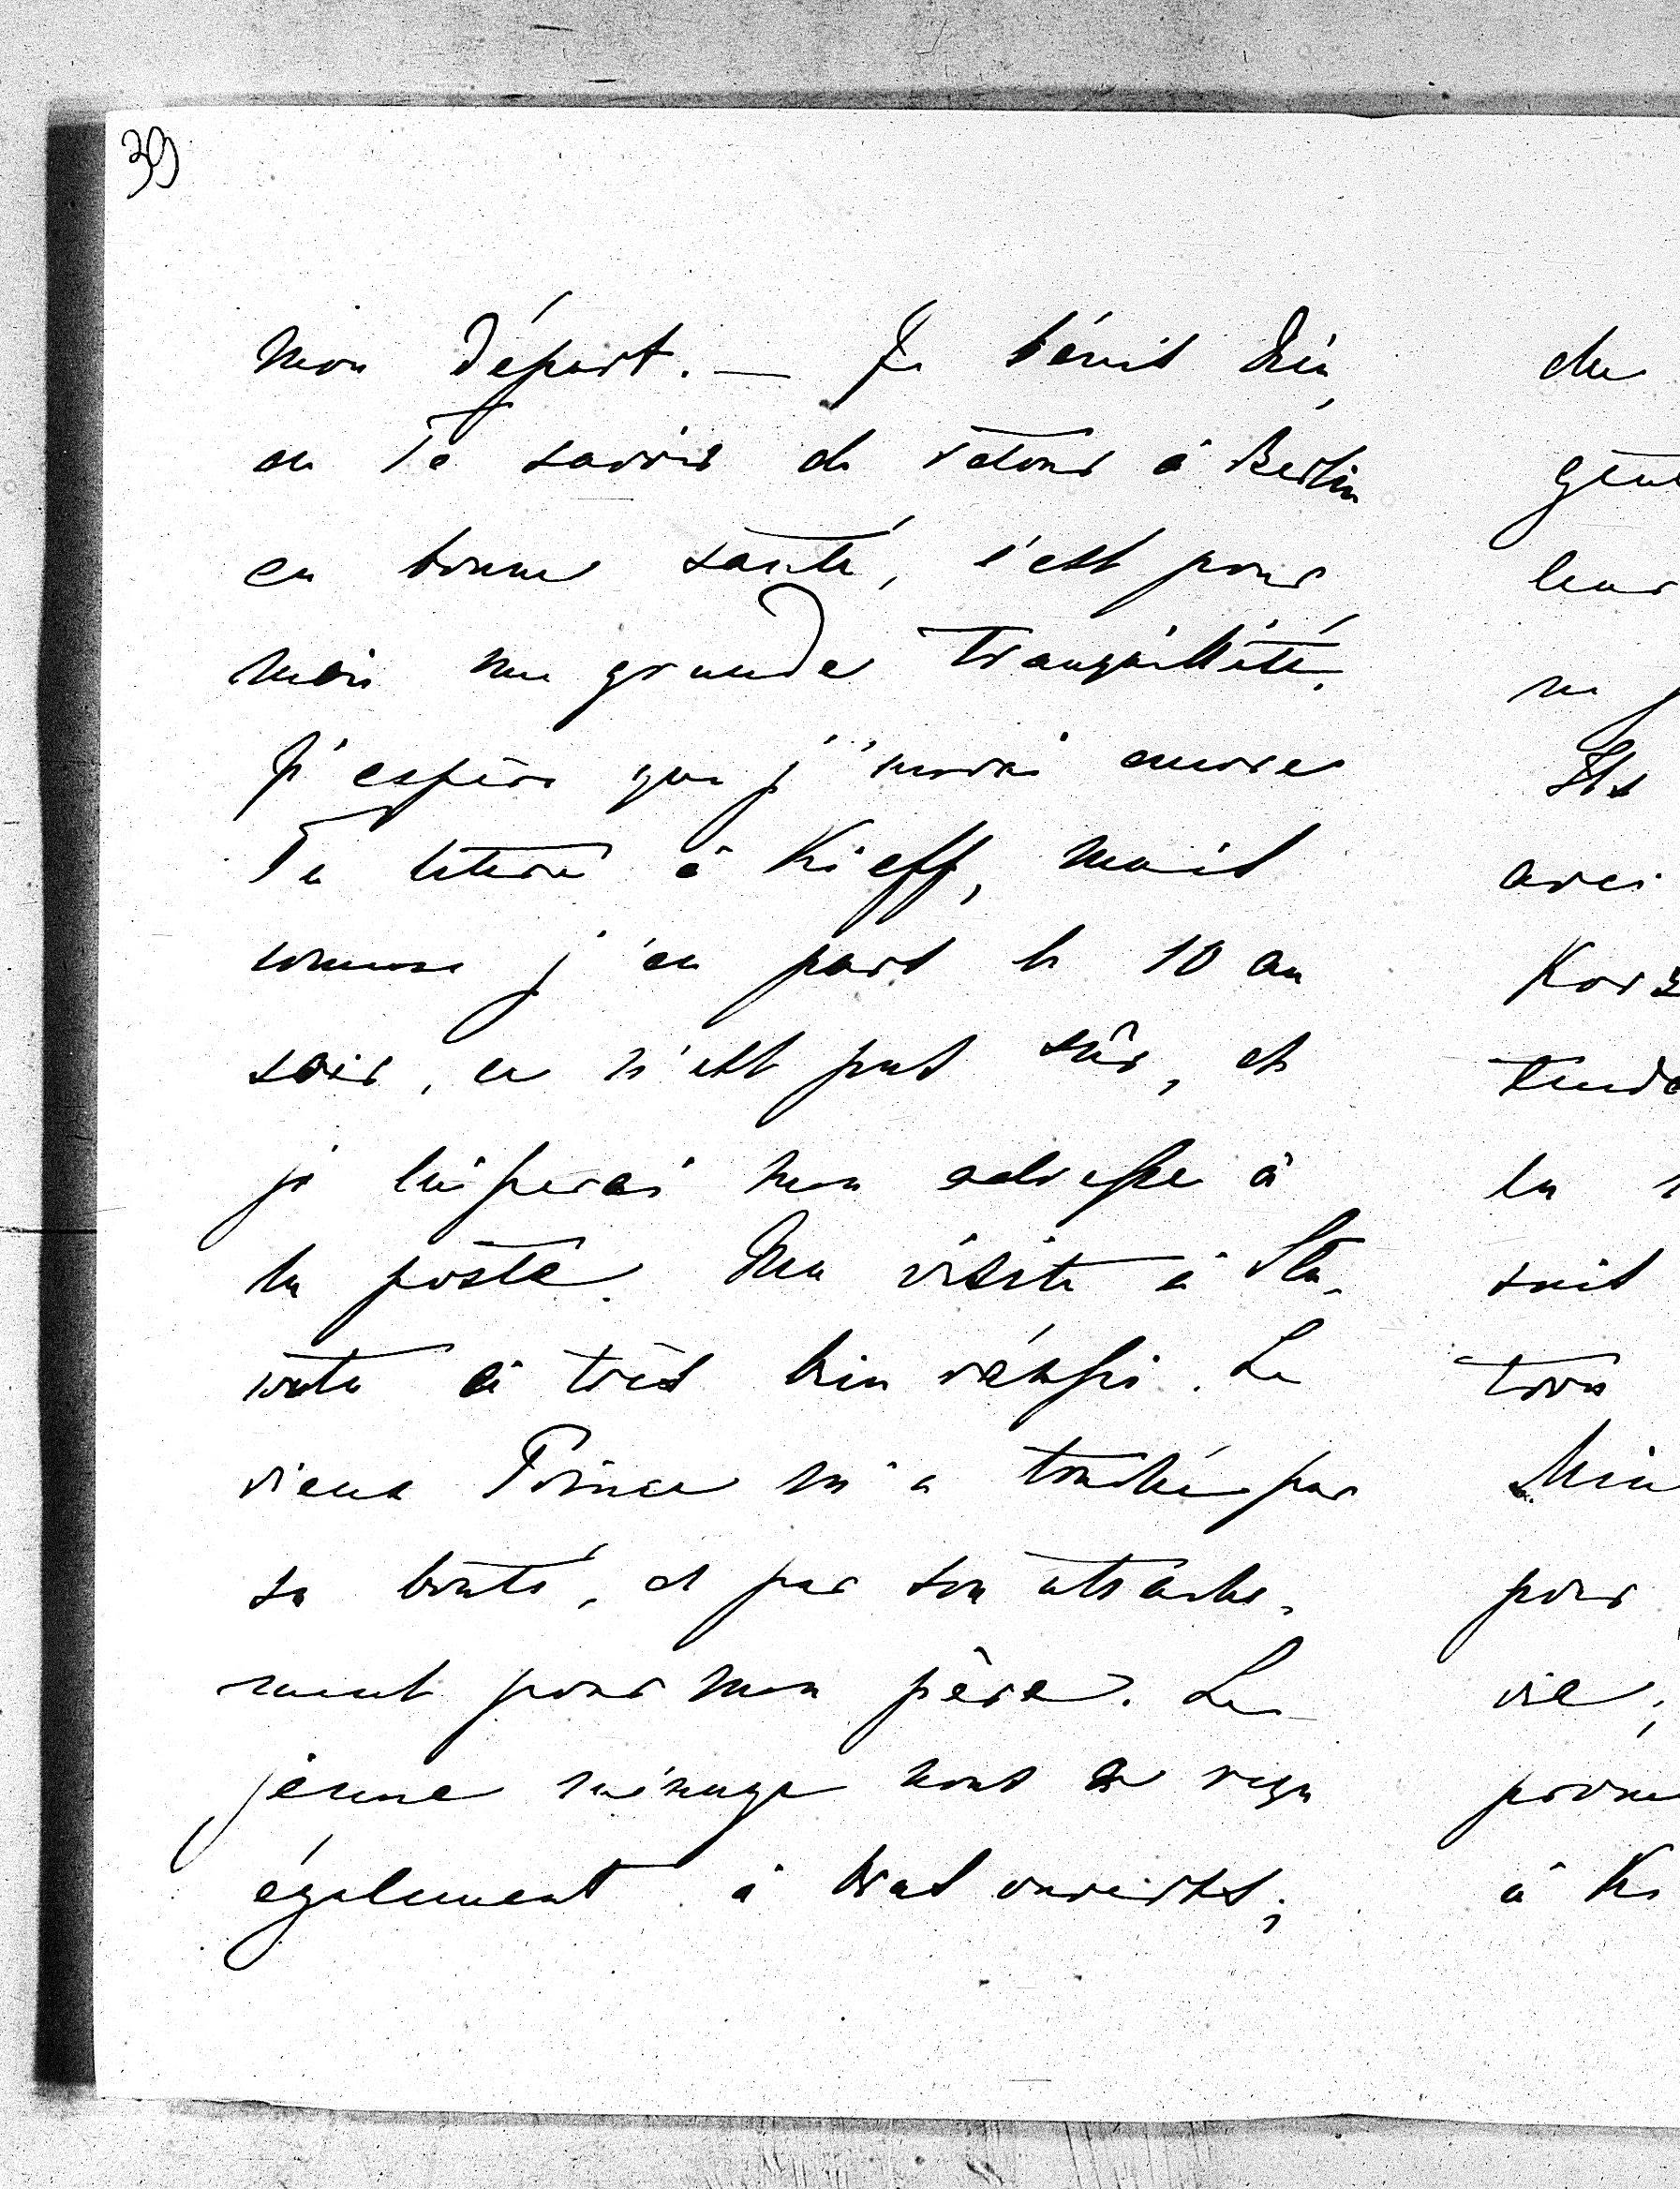 39
mon départ. — Je bénis Dieu,
de Te savoir de retour à Berlin
en bonne santé, c'est pour
moi une grande tranquillité.
J'espère que j'aurai encore
Ta lettre à Kieff, mais
comme j'en pars le 10 au
soir, ce n'est pas sûr, et
je laisserai mon adresse à
la poste. Ma visite à Sla-
vouta a très bien réussi. Le
vieux Prince m'a touché par
sa bonté, et par son attache-
ment pour mon père. Le
jeune ménage nous a reçu
également à bras ouverts;